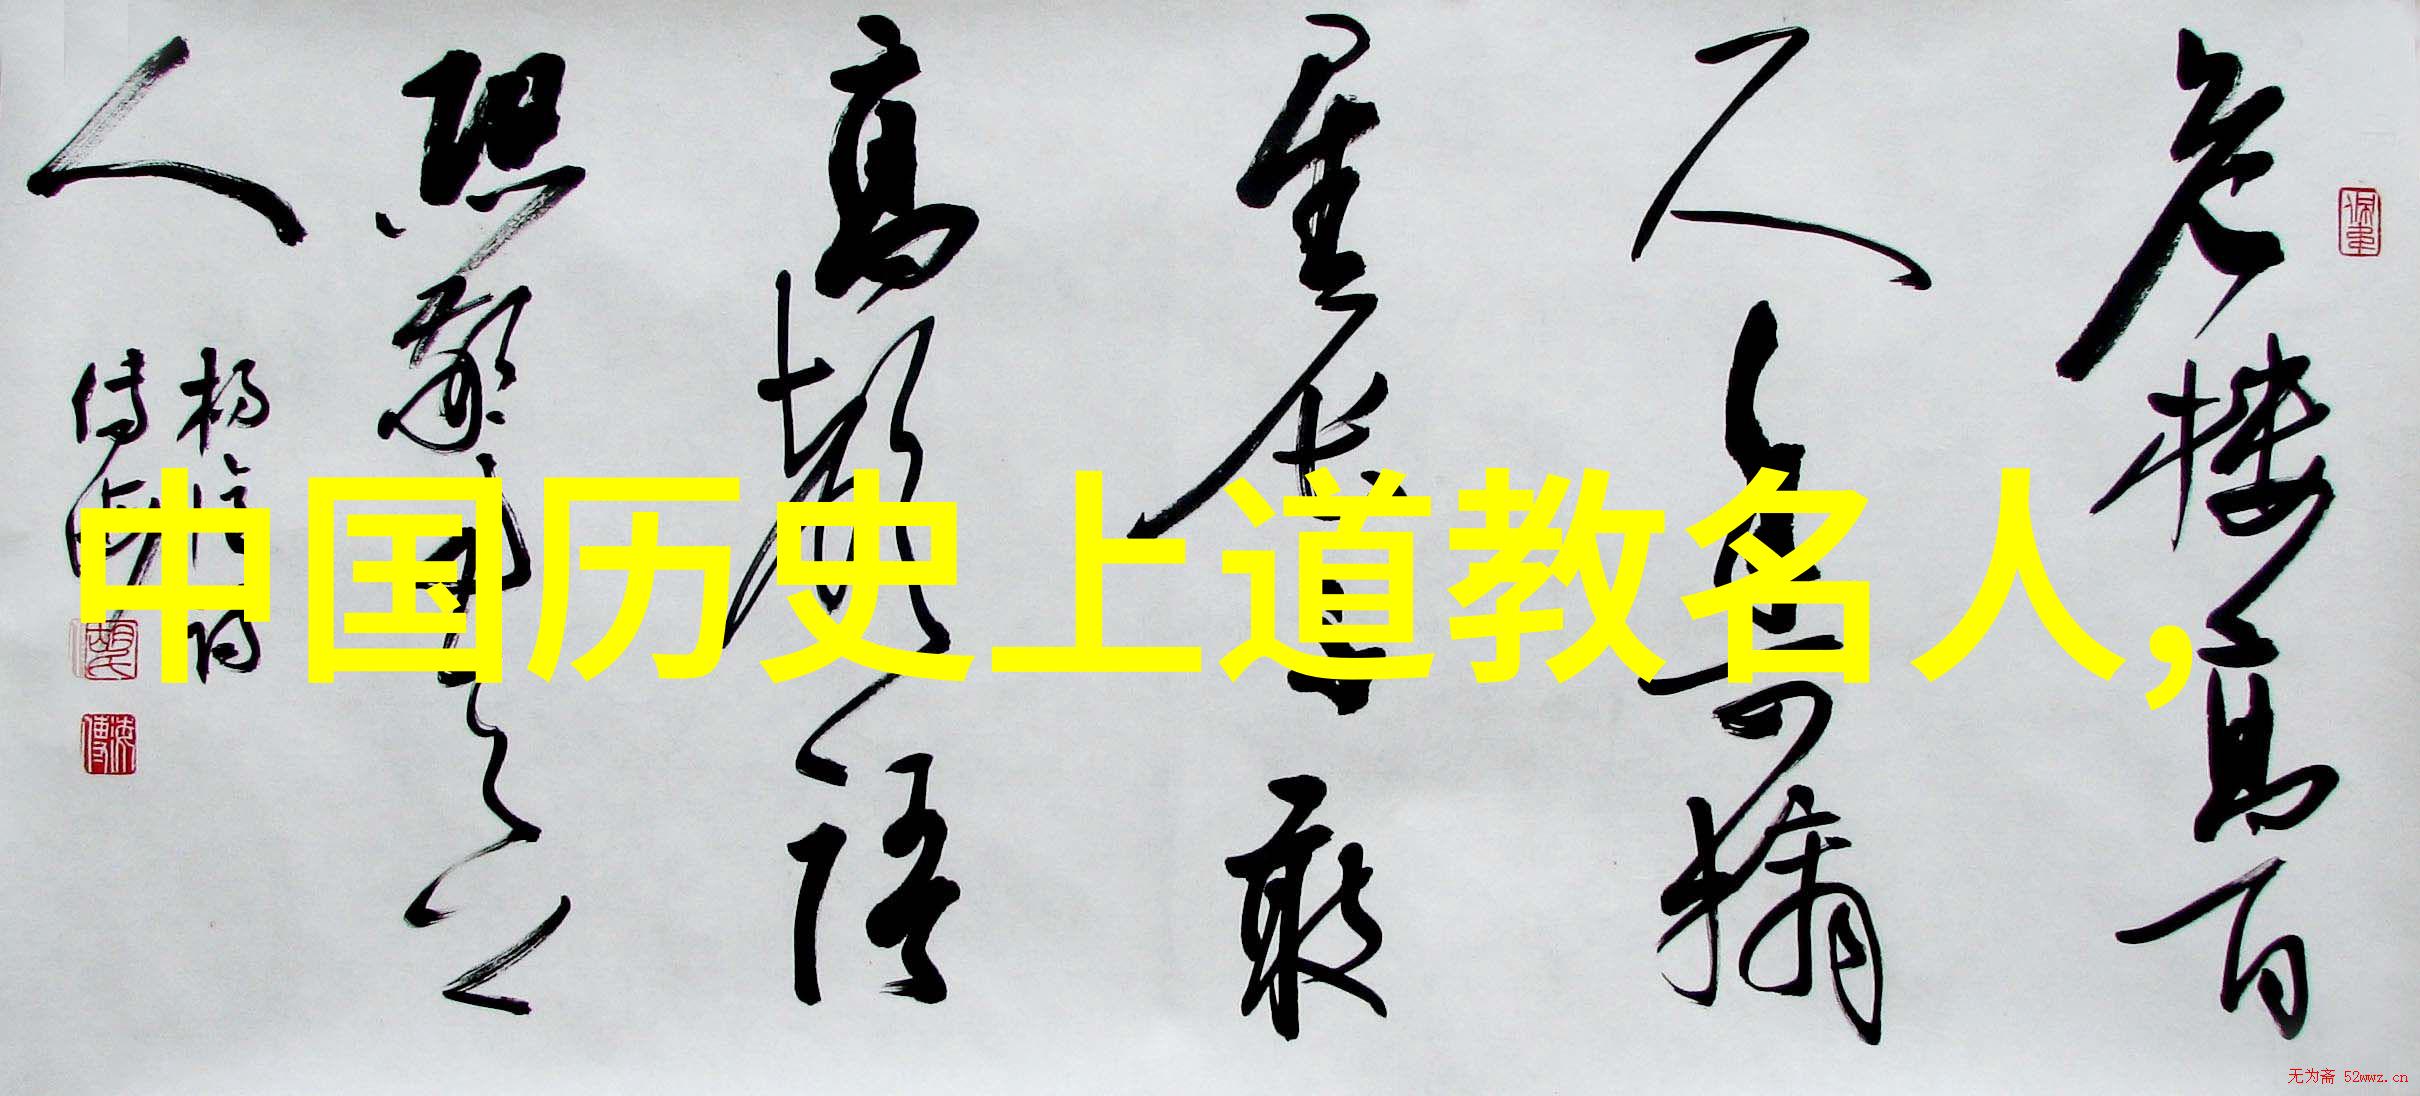 危樓高百
尺手可摘
星辰不敢
高聲語
恐驚天上
人
中国历史上道教名人,
无为斋 52wwz.cn